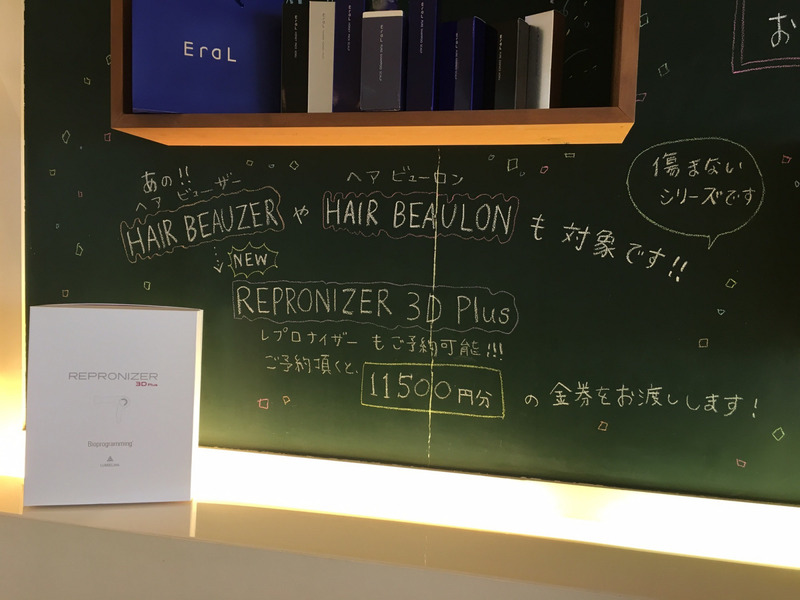 EraL
お
あの!!
ヘア ビューザー
ヘア ビューロン
HAIR BEAUZER や HAIR BEAULON も 対象です!!
傷まない
シリーズです
NEW
REPRONIZER 3D Plus
レプロナイザー もご予約可能!!!
ご予約頂くと、
11500円分 の 金券をお渡しします!
REPRONIZER
3D Plus
Bioprogramming